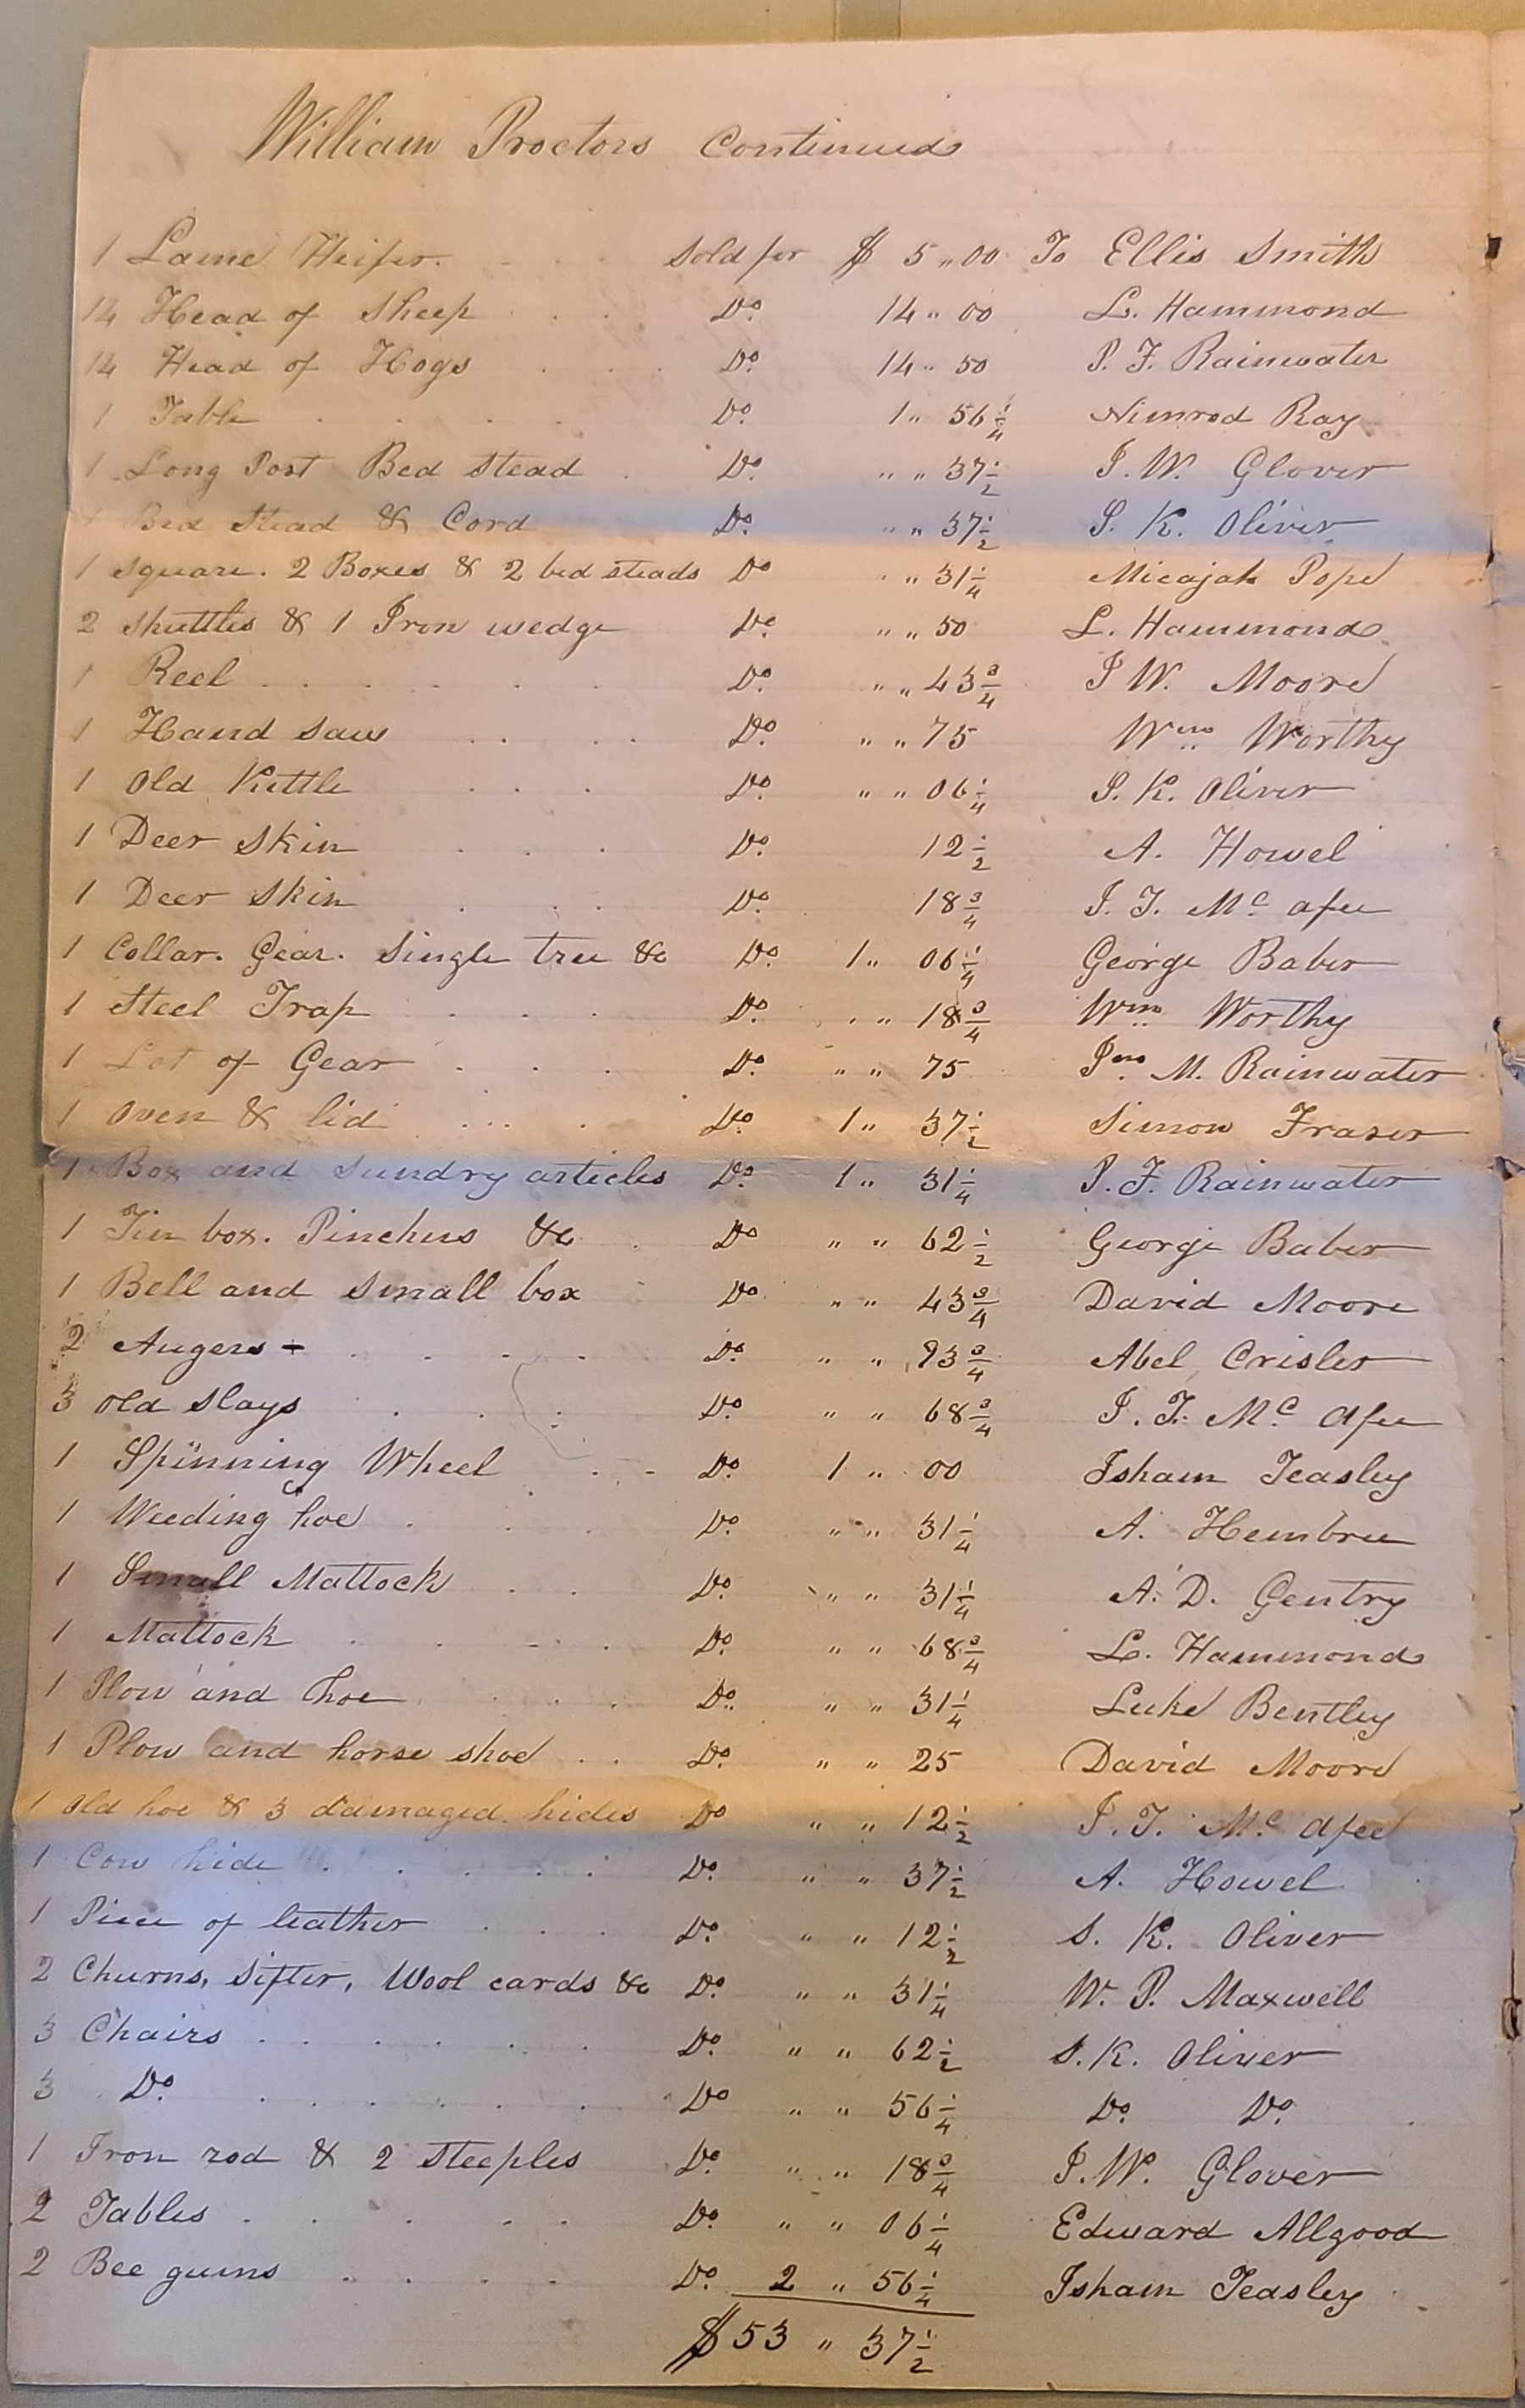 William Proctors Continued
1 Lame Heifer. Sold for $ 5 " 00 To Ellis Smith
14 Head of Sheep Do. 14 " 00 L. Hammond
14 Head of Hogs Do. 14 " 50 P. F. Rainwater
1 Table Do. 1 " 56 1/4 Nimrod Ray
1 Long Post Bed Stead Do. " " 37 1/2 J. W. Glover
1 Bed Stead & Cord Do. " " 37 1/2 S. K. Oliver
1 Square. 2 Boxes & 2 bed steads Do " " 31 1/4 Micajah Pope
2 Shuttles & 1 Iron wedge Do. " " 50 L. Hammond
1 Reel Do. " " 43 3/4 J W. Moore
1 Hand Saw Do. " " 75 Wm Worthy
1 Old Kettle Do. " " 06 1/4 S. K. Oliver
1 Deer Skin Do. 12 1/2 A. Howel
1 Deer Skin Do. 18 3/4 J. T. Mc afee
1 Collar. Gear. Single tree &c Do. 1 " 06 1/4 George Baber
1 Steel Trap Do. " " 18 3/4 Wm Worthy
1 Lot of Gear Do. " " 75 Jno. M. Rainwater
1 Oven & lid Do. 1 " 37 1/2 Simon Fraser
1 Box and Sundry articles Do. 1 " 31 1/4 P. F. Rainwater
1 Tin box. Pinchers &c Do " " 62 1/2 George Baber
1 Bell and Small box Do. " " 43 3/4 David Moore
2 Augers Do. " " 93 3/4 Abel Crisler
3 Old Slays Do. " " 68 3/4 J. T. Mc Afee
1 Spinning Wheel Do. 1 " 00 Isham Teasley
1 Weeding hoe Do. " " 31 1/4 A. Hembree
1 Small Mattock Do. " " 31 1/4 A. D. Gentry
1 Mattock Do. " " 68 3/4 L. Hammond
1 Plow and hoe Do. " " 31 1/4 Luke Bentley
1 Plow and horse shoe Do. " " 25 David Moore
1 Old hoe & 3 damaged hides Do " " 12 1/2 J. T. Mc Afee
1 Cow hide Do. " " 37 1/2 A. Howel
1 Piece of leather Do. " " 12 1/2 S. K. Oliver
2 Churns, Sifter, Wool cards &c Do. " " 31 1/4 W. P. Maxwell
3 Chairs Do. " " 62 1/2 S. K. Oliver
3 Do. Do " " 56 1/4 Do. Do.
1 Iron rod & 2 Steeples Do. " " 18 3/4 J. W. Glover
2 Tables Do. " " 06 1/4 Edward Allgood
2 Bee gums Do. 2 " 56 1/4 Isham Teasley
$ 53 " 37 1/2